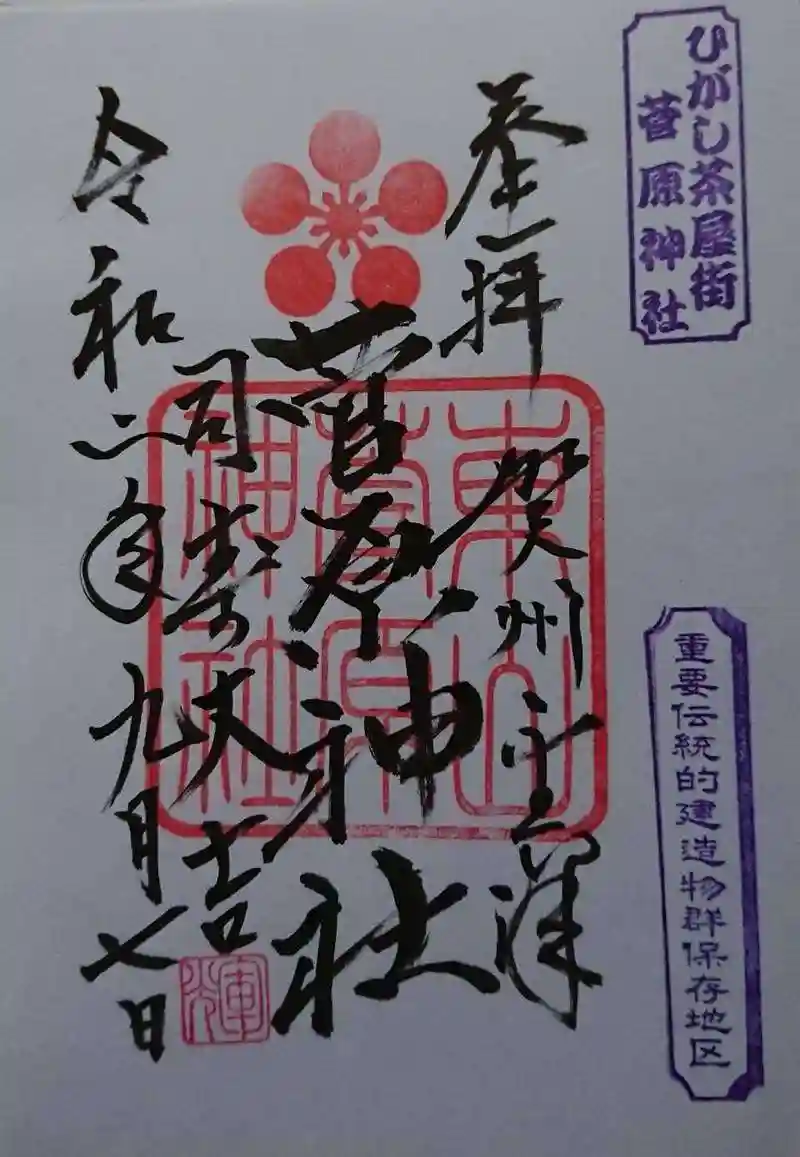 ひがし茶屋街
菅原神社
重要伝統的建造物群保存地区
奉拝
賀州金澤
菅原神社
東山
菅原
神社
令和二年九月七日